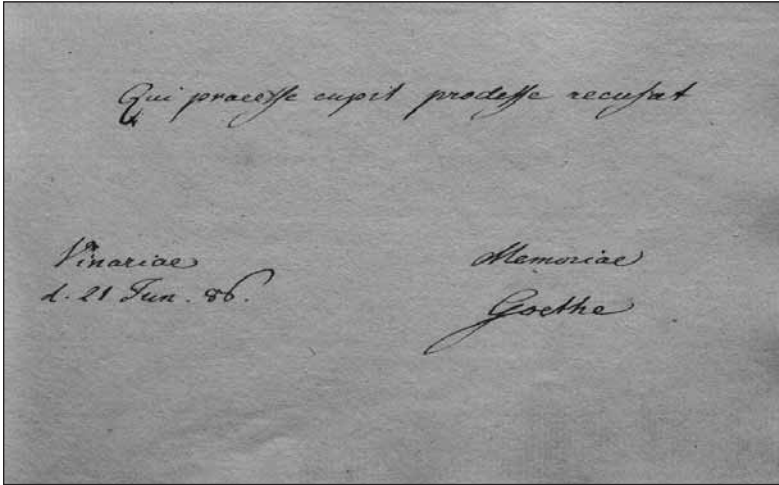 Qui praeesse cupit prodesse recusat
Vinariae
d. 21 Jun. 86.
Memoriae
Goethe